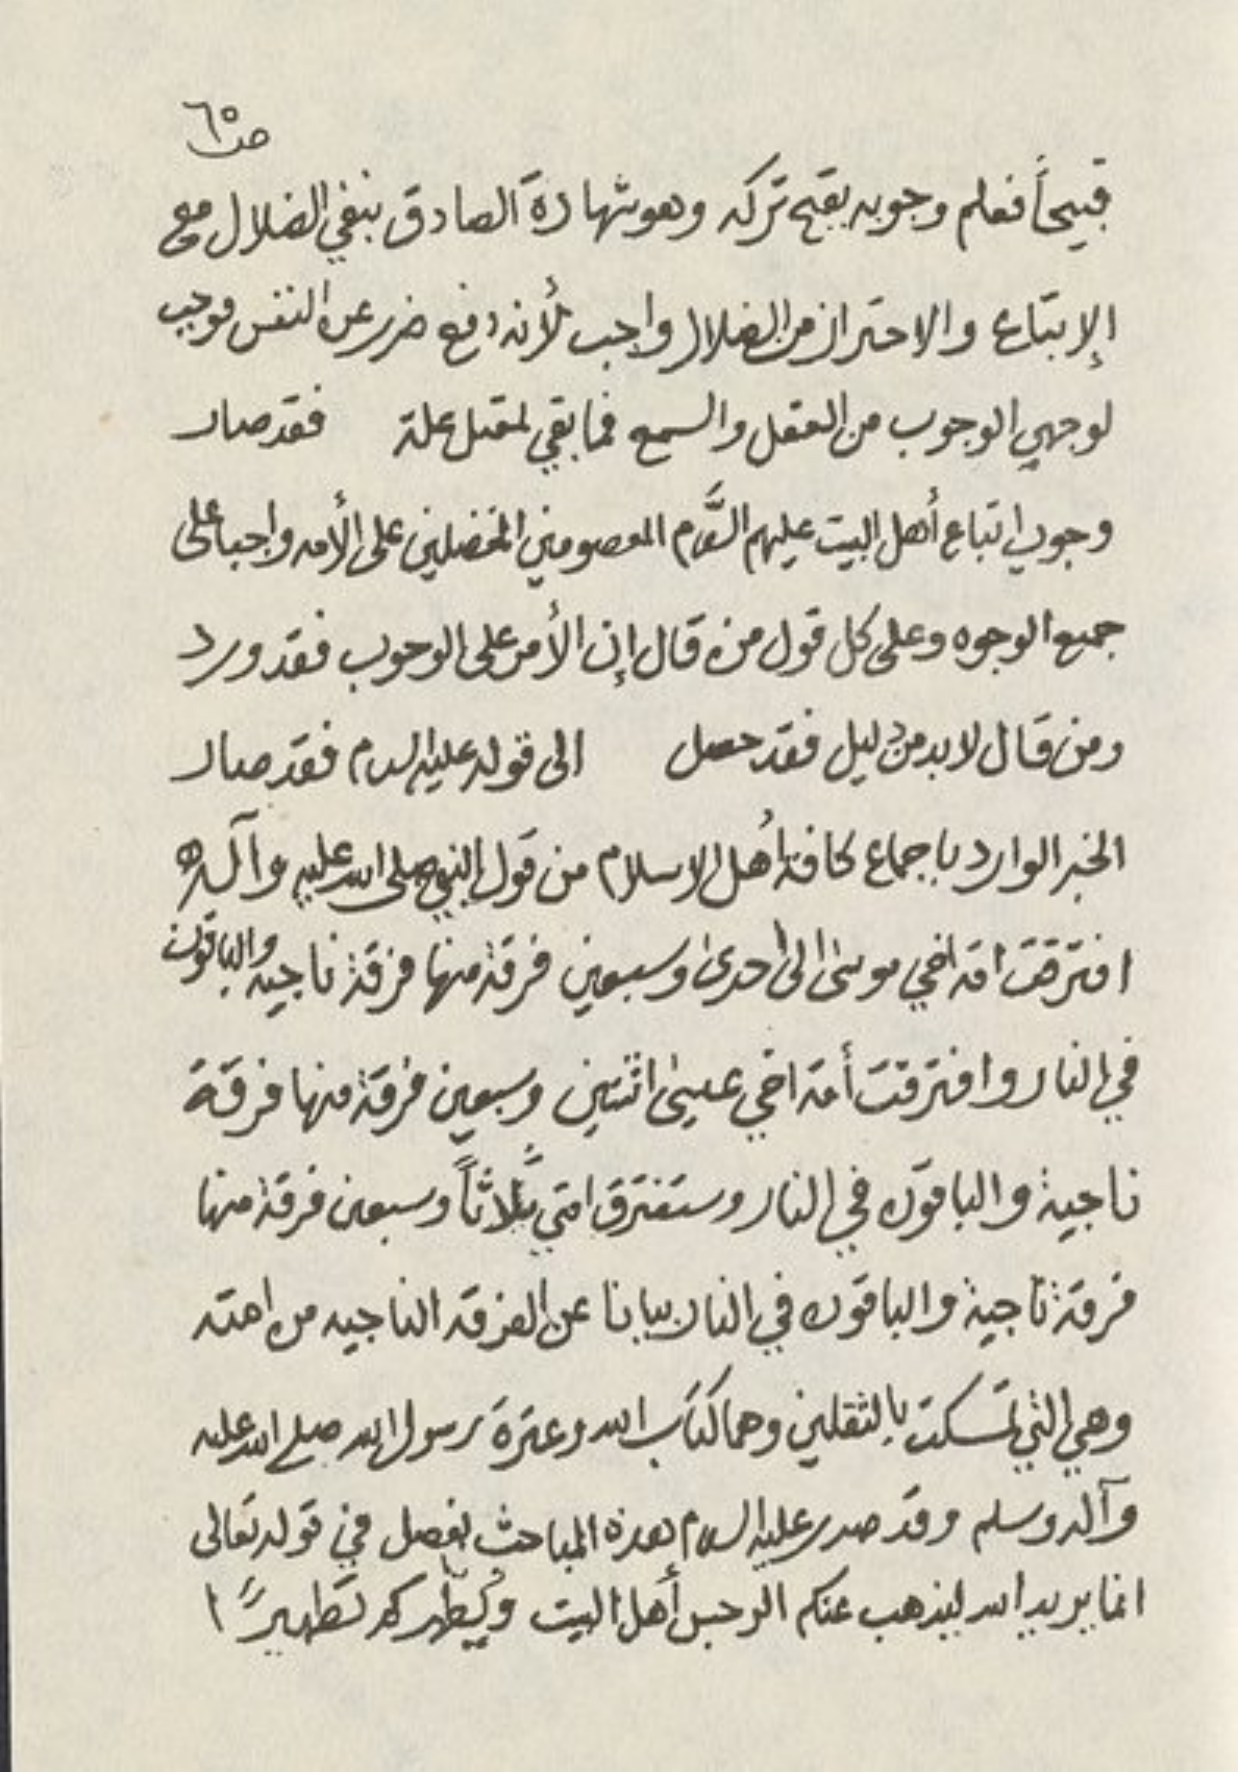 ص٦٥
قبيحاً فعلم وجوبه بقبح تركه وهو شهادة الصادق بنفي الضلال مع
الإبتاع والاحتراز من الضلال واجب لأنه دفع ضرر عن النفس فوجب
لوجهي الوجوب من العقل والسمع فما بقي لمقبل علة فقد صار
وجوب اتباع أهل البيت عليهم السَّلام المعصومين المفضلين على الأمه واجبا على
جميع الوجوه وعلى كل قول من قال إن الأمر على الوجوب فقد ورد
ومن قال لا بد من دليل فقد حصل الى قوله عليه السلام فقد صار
الخبر الوارد باجماع كافة أهل الاسلام من قول النبي صلى الله عليه وآله
افترقت امة اخي موسى الى احدى وسبعين فرقة منها فرقة ناجيه والباقون
في النار وافترقت أمة اخي عيسى اثنتين وسبعين فرقة منها فرقة
ناجية والباقون في النار وستفترق امتي ثلاثاً وسبعين فرقة منها
فرقة ناجية والباقون في النار بيانا عن الفرقه الناجيه من امته
وهي التي تمسكت بالثقلين وهما كتاب الله وعترة رسول الله صلى الله عليه
وآله وسلم وقد صدر عليه السلام هذه المباحث بفصل في قوله تعالى
انما يريد الله ليذهب عنكم الرجس أهل البيت ويُطهركم تطهيرًا